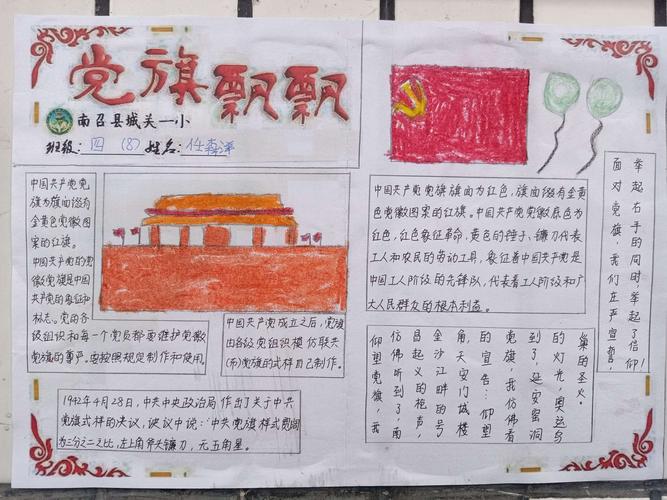 党旗飘飘
南召县城关一小
班级:四(8)姓名:任森泽
中国共产党党
旗为旗面缀有
金黄色党徽图
案的红旗。
中国共产党的党
徽党旗是中国
共产党的象征和
标志。党的各
级组织和每一个党员都要维护党徽
党旗的尊严。要按照规定制作和使用。
中国共产党成立之后,党旗
由各级党组织模仿联共
(布)党旗的式样自己制作。
1942年4月28日,中共中央政治局作出了关于中共
党旗式样的决议,决议中说:"中共党旗样式宽阔
为三分之二之比,左上角斧头镰刀,无五角星。
中国共产党党旗旗面为红色,旗面缀有金黄
色党徽图案的红旗。中国共产党党徽底色为
红色,红色象征革命,黄色的锤子、镰刀代表
工人和农民的劳动工具,象征着中国共产党是
中国工人阶级的先锋队,代表着工人阶级和广
大人民群众的根本利益。
举起右手的同时,举起了信仰!
面对党旗,我们庄严宣誓,
巢的圣火。
的灯光,奥运鸟
到了,延安窑洞
党旗,我仿佛看
的宣告:仰望
角,天安门城楼
金沙江畔的号
昌起义的枪声,
仿佛听到了,南
仰望党旗,我